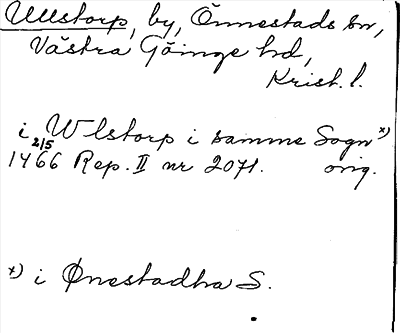 Ullstorp, by, Önnestads sn,
Västra Göinge hd,
Krist. l.
i Wlstorp i samme Sogn x)
2/5
1466 Rep. II nr 2071. orig.
x) i Ønestadha S.